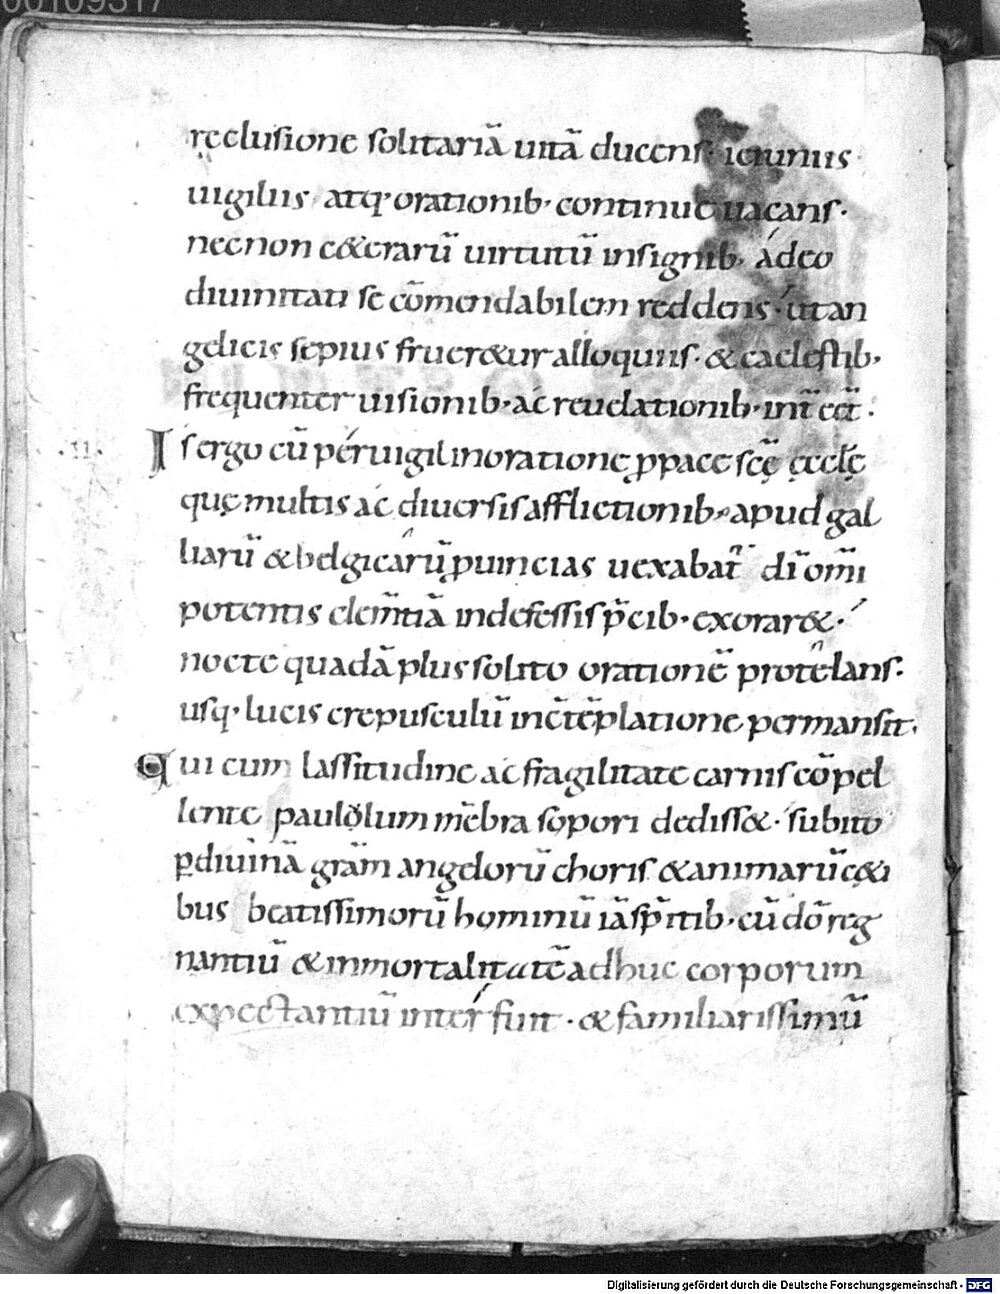 00109317
reclusione solitariā uitā ducens. ieiuniis
uigiliis atq· orationib· continue uacans·
necnon c&erarū uirtutū insignib· ádeo
diuinitati se cōmendabilem reddens· ut an
gelicis sepius frueret&ur alloquiis· & caelestib·
frequenter uisionib· ac reuelationib· int̄ eēt·
·II· Is ergo cū péruigil in oratione ꝓ pace sc̄ę ęcclę̄
quę multis ac diuersis afflictionib· apud gal
liarū & belgicarū ꝓuincias uexabat̄ dī om̄i
potentis clem̄tiā indefessis p̄cib· exorar&·
nocte quadā plus solito orationē protelans·
usq· lucis crepusculū in cōtēplatione permansit·
Qui cum lassitudine ac fragilitate carnis cōpel
lente paululum mēbra sopori dediss&· subito
ꝑ diuinā grām angelorū choris & animarū cę&i
bus beatissimorū hominū iā sp̄itib· cū dō reg
nantiū & inmortalitatē adhuc corporum
expectantiū interfuit· & familiarissimū
Digitalisierung gefördert durch die Deutsche Forschungsgemeinschaft - DFG